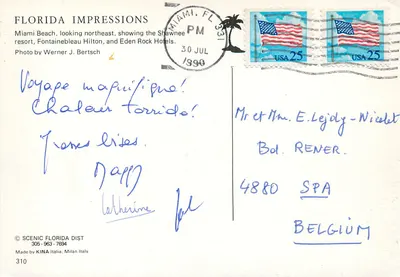 FLORIDA IMPRESSIONS
Miami Beach, looking northeast, showing the Shawnee
resort, Fontainebleau Hilton, and Eden Rock Hotels.
Photo by Werner J. Bertsch
Voyage magnifique!
Chaleur torride!
Grosses bises.
Maggy
Catherine
© SCENIC FLORIDA DIST
305-963-7694
Made by KINA Italia. Milan Italie
310
MIAMI, FL 331
PM
30 JUL
1990
USA 25
USA 25
Mr et Mme. E. Lejoly-
Bd. RENER.
4880 SPA
BELGIUM